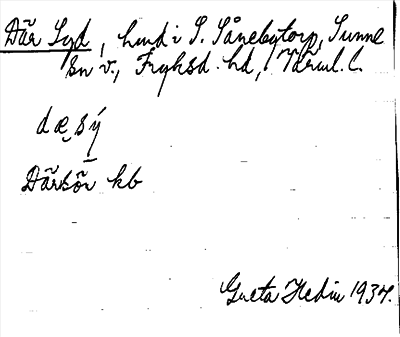 Där Syd, hmd i S. Sånebytorp, Sunne
sn v., Fryksd. hd, Värml. l.
dæ sý
Därsör kb
Greta Hedin 1934.